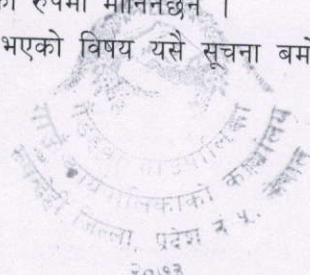 रुपमा मानिनेछन ।
भएको विषय यसै सूचना बमो
गाउँपालिका
गाउँ कार्यपालिकाको कार्यालय
रुपन्देही जिल्ला, प्रदेश नं ५, नेपाल
२०७३